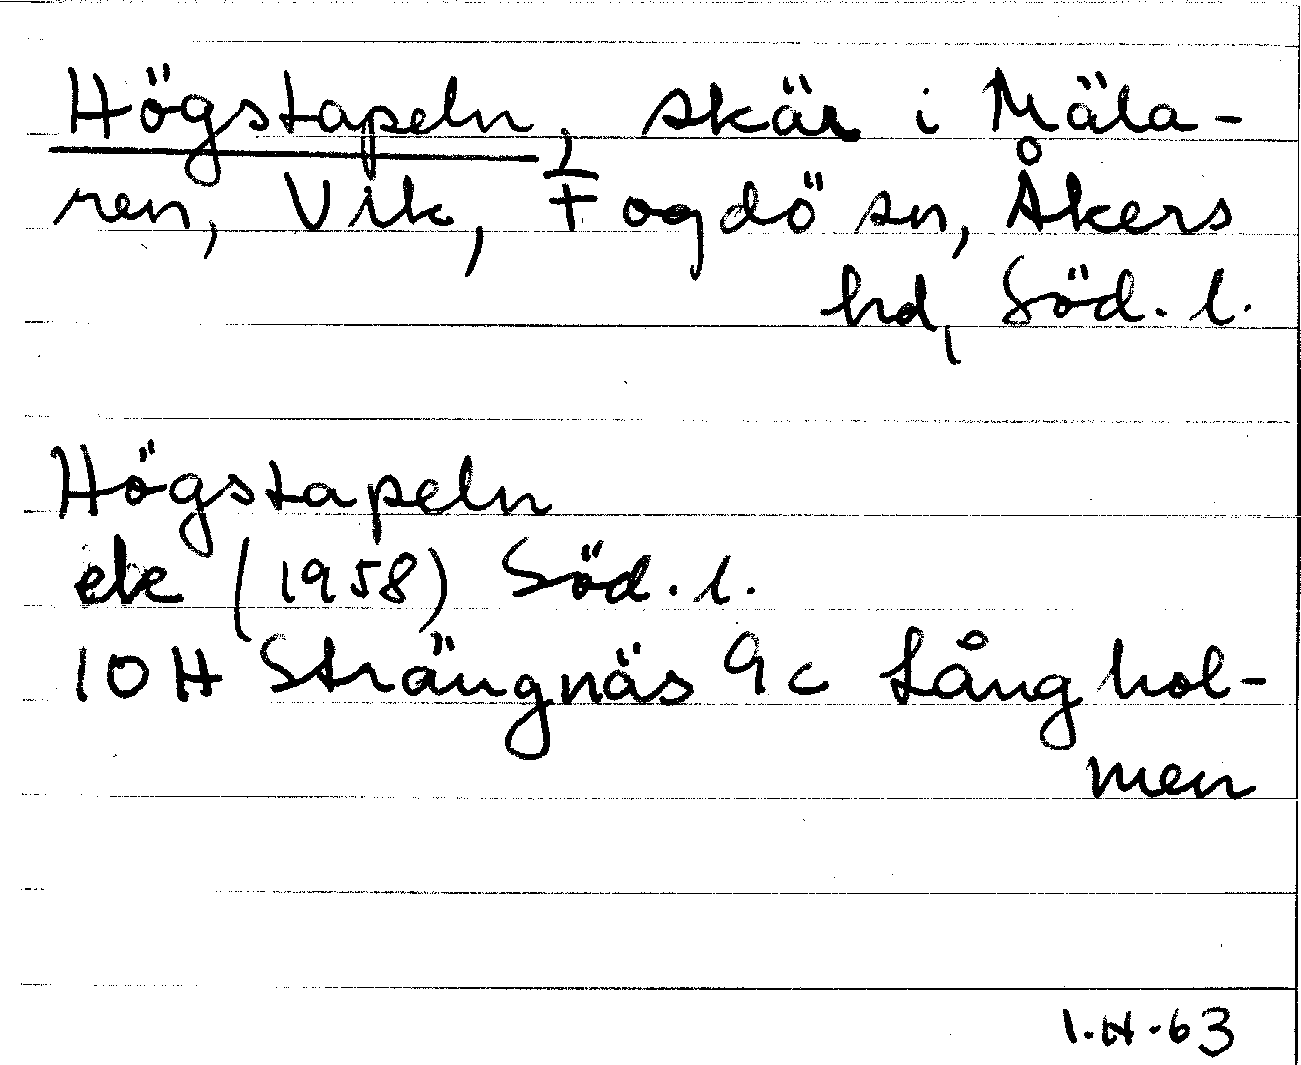 Högstapeln, skär i Mäla-
ren, Vik, Fogdö sn, Åkers
hd, Söd. l.
Högstapeln
ek (1958) Söd. l.
10H Strängnäs 9c Långhol-
men
1.H.63